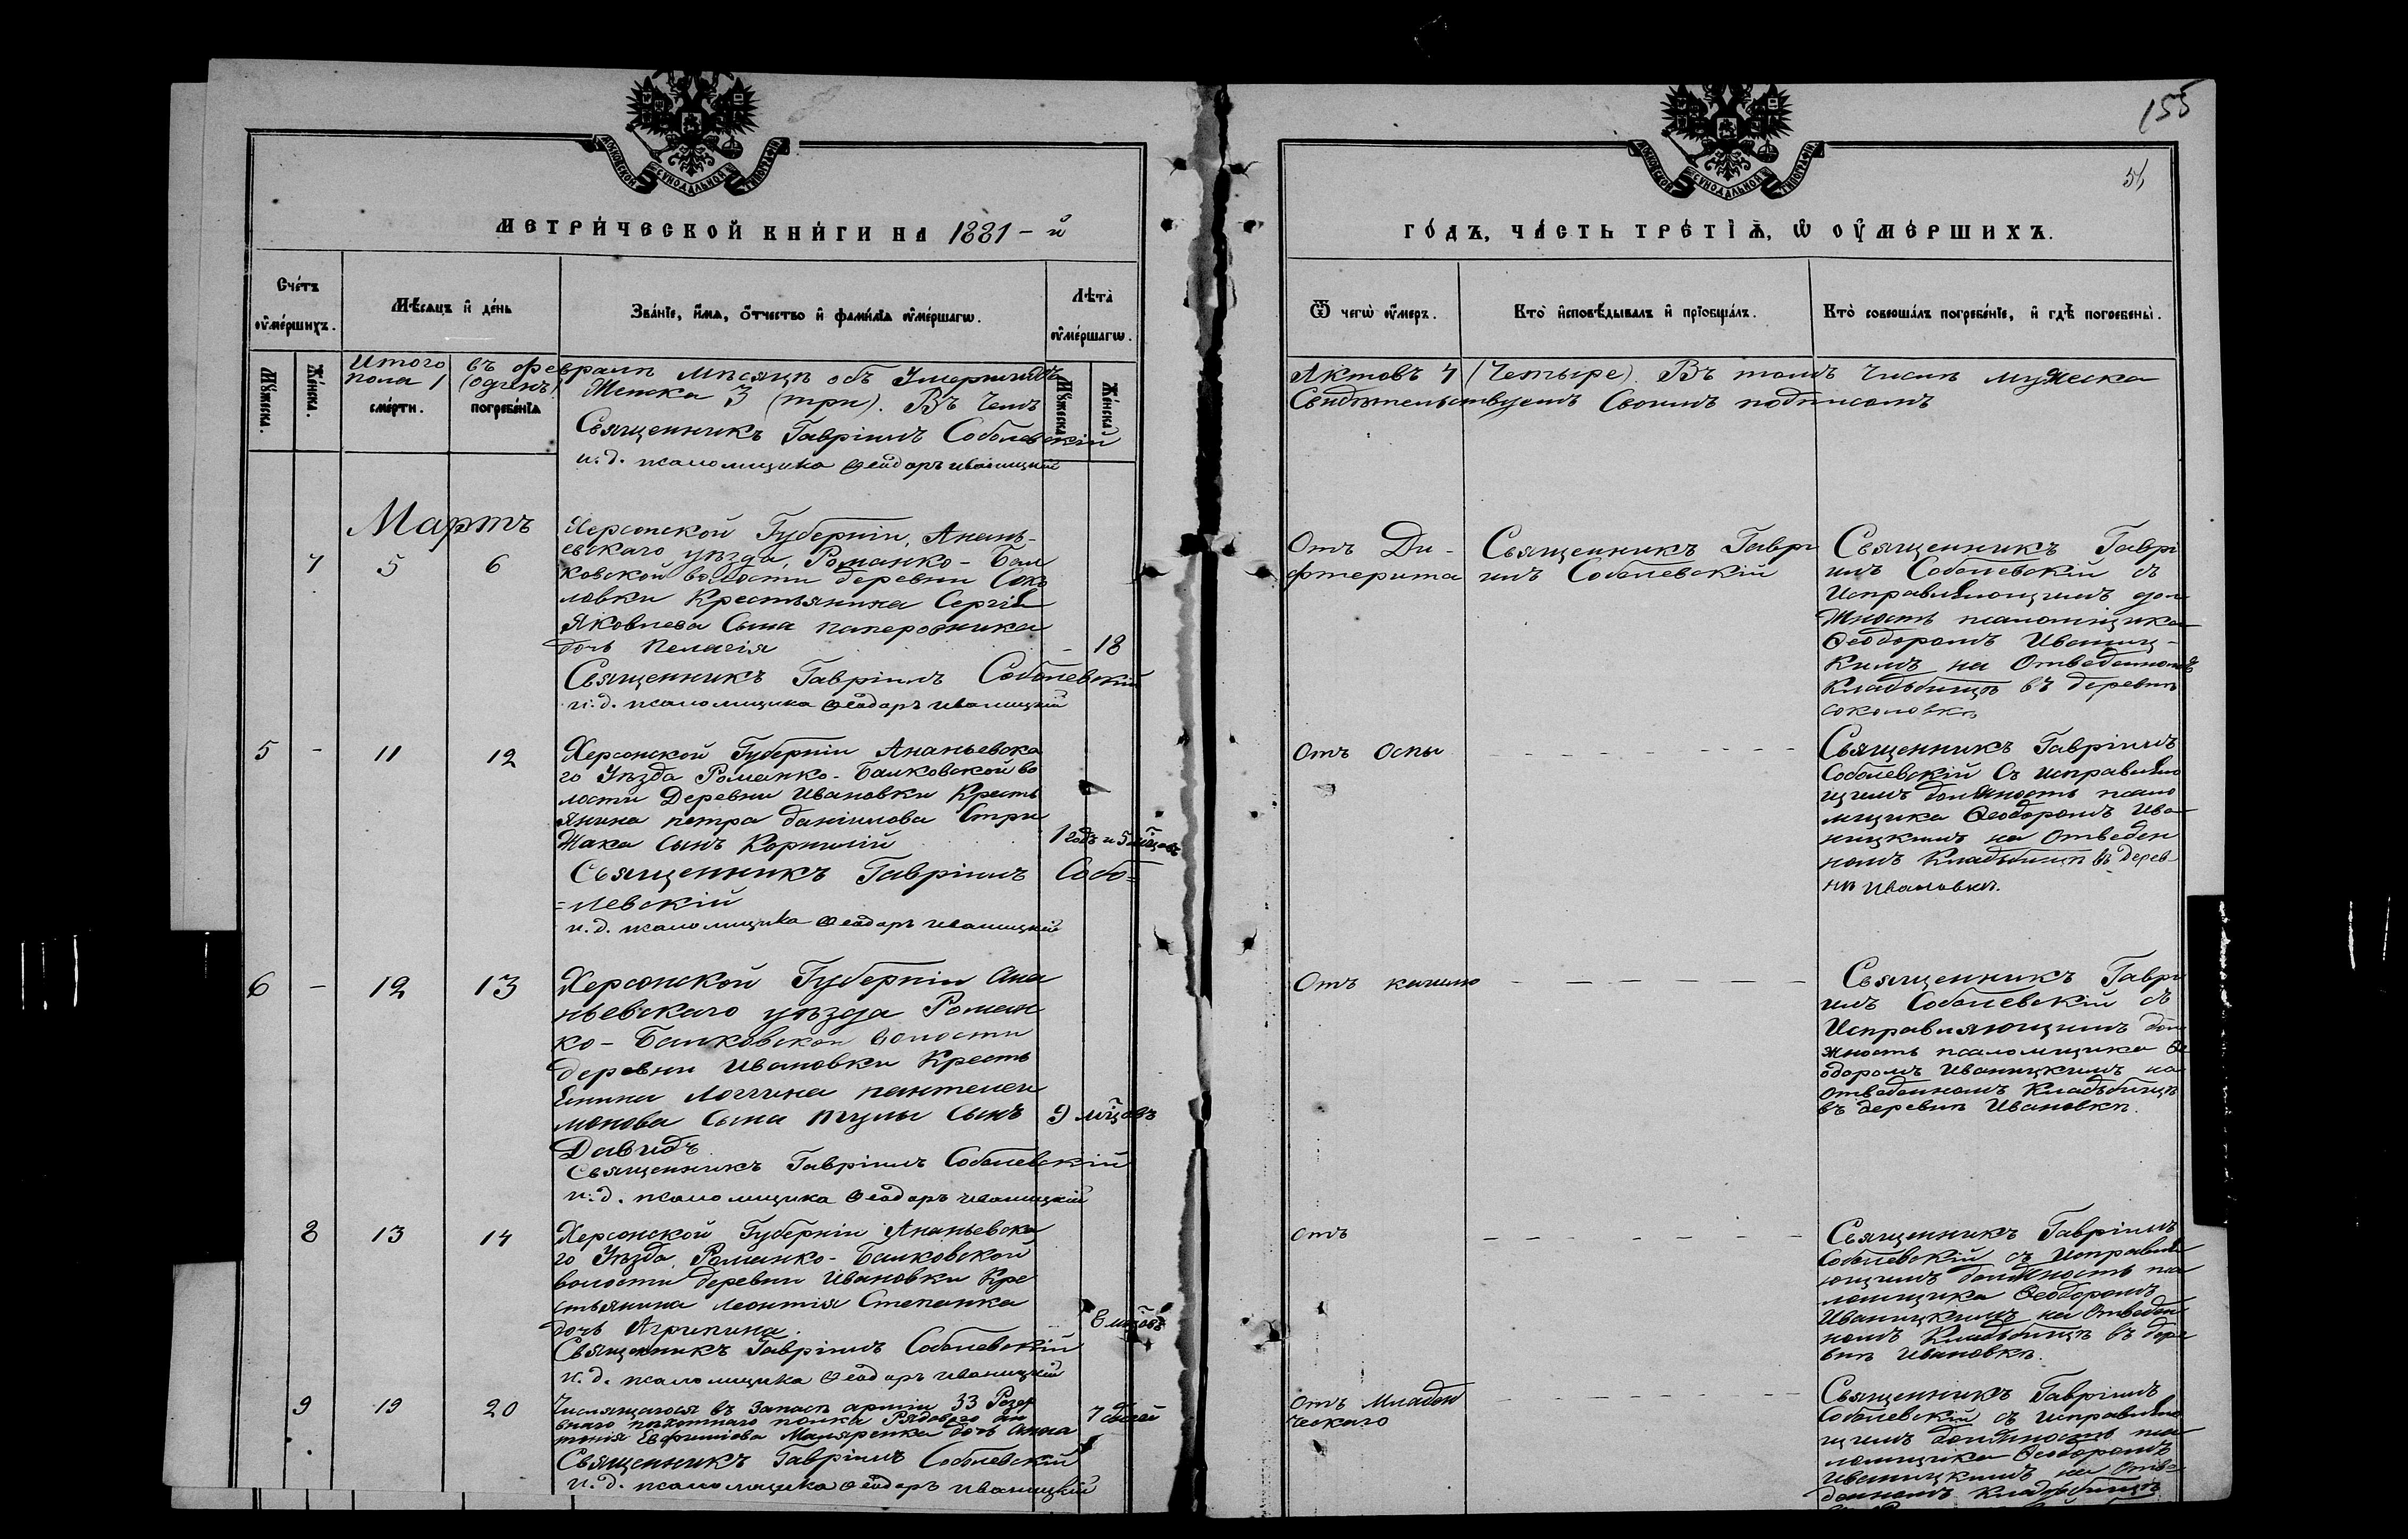 155
51
МОСКОВСКОЙ СУНОДАЛЬНОЙ ТИПОГРАФІИ
МОСКОВСКОЙ СУНОДАЛЬНОЙ ТИПОГРАФІИ
МЕТРИ́ЧЕСКОЙ КНИ́ГИ НА 1881-й
ГО́ДЪ, ЧА́СТЬ ТРЕ́ТІѦ, Ѡ ОУ҆МЕ́РШИХЪ.
Сче́тъ оу҆ме́ршихъ.
Мѣ́сяцъ и҆ де́нь
Зва́нїе, и҆́мѧ, ѻ҆́тчество и҆ фами́лїѧ оу҆ме́ршагѡ.
Лѣта̀ оу҆ме́ршагѡ.
Ѿ чегѡ̀ оу҆́меръ.
Кто̀ и҆сповѣ́дывалъ и҆ прїобща́лъ.
Кто̀ соверша́лъ погребе́нїе, и҆ гдѣ̀ погребены̀.
Мꙋ́жеска.
Же́нска.
сме́рти.
погребе́нїѧ
Мꙋ́жеска
Же́нска.
Итого въ Февралѣ мѣсяцѣ объ Умершихъ
Актовъ 4 (Четыре). Въ томъ числѣ мужеска
пола 1 (одинъ) Женска 3 (три). Въ чемъ
Свидѣтельствуемъ Своимъ подписомъ
Священникъ Гавріилъ Соболевскій
и.д. псаломщика Ѳеодоръ Иваницкій
Мартъ
4 5 6
Херсонской Губерніи, Анань-
евскаго уѣзда, Романко-Бал
ковской волости деревни Соко
ловки Крестьянина Сергія
Яковлева Сына паперовника
дочь Пелагія
- 18
Священникъ Гавріилъ Соболевскій
и.д. псаломщика Ѳеодоръ Иваницкій
Отъ Ди-
фтерита
Священникъ Гаврі
илъ Соболевскій
Священникъ Гаврі
илъ Соболевскій съ
Исправляющимъ дол
жность псаломщика
Ѳеодоромъ Иваниц-
кимъ на Отведенномъ
Кладбищѣ въ деревнѣ
Соколовкѣ
5 - 11 12
Херсонской Губерніи Ананьевска
го Уѣзда Романко-Балковской во
лости Деревни Ивановки Кресть
янина петра даніилова Стри
жака Сынъ Корнилій
1 годъ и 5 мѣцовъ
Священникъ Гавріилъ Собо=
=левскій
и.д. псаломщика Ѳеодоръ Иваницкій
Отъ Оспы
Священникъ Гавріилъ
Соболевскій Съ исправляю
щимъ должность псало
мщика Ѳеодоромъ Ива
ницкимъ на Отведен
номъ Кладбищѣ въ Дерев
нѣ Ивановкѣ.
6 - 12 13
Херсонской Губерніи Ана
ньевскаго уѣзда Роман
ко-Балковской волости
деревни Ивановки Кресть
янина Логгина пантелеи
монова Сына Сынъ
Давидъ
9 мѣцовъ
Священникъ Гавріилъ Соболевскій
и.д. псаломщика Ѳеодоръ Иваницкій
Отъ кашлю
Священникъ Гаврі
илъ Соболевскій съ
Исправляющимъ дол
жность псаломщика Ѳе
одоромъ Иваницкимъ на
Отведенномъ Кладбищѣ
въ деревнѣ Ивановкѣ.
8 13 14
Херсонской Губерніи Ананьевска
го Уѣзда, Романко-Балковской
волости деревни Ивановки Кре
стьянина Леонтія Степанка
дочь Агрипина.
мѣцовъ
Священникъ Гавріилъ Соболевскій
и.д. псаломщика Ѳеодоръ Иваницкій
Отъ
Священникъ Гавріилъ
Соболевскій съ Исправля
ющимъ должность пса
ломщика Ѳеодоромъ
Иваницкимъ на Отведен
номъ Кладбищѣ въ дере
внѣ Ивановкѣ.
9 19 20
Числящагося въ Запасѣ арміи 33 Резер
внаго пѣхотнаго полка Рядового ан
тонія Евфиміова Маляренка дочь Анна
7 дней
Священникъ Гавріилъ Соболевскій
и.д. псаломщика Ѳеодоръ Иваницкій
Отъ Младен
ческаго
Священникъ Гавріилъ
Соболевскій съ исправляю
щимъ должность пса
ломщика Ѳеодоромъ
Иваницкимъ на Отве
денномъ Кладбищѣ